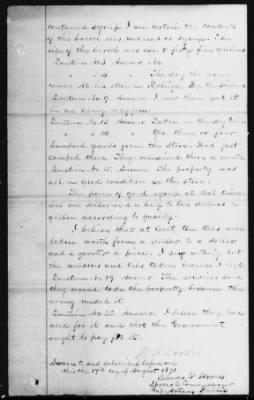 contained syrup. I am certain the contents
of the barrel was molasses or syrup. The
size of the barrel was about forty five gallons
Question No 3 Answer No.
" " 4 " The day the army
came. At his store in Raleigh. By the soldiers
Question No 9 Answer I saw them put it
in an army wagon
Question No 12 Answer Taken in the day time
" " 14 " Yes, three or four
hundred yards from the store. Had just
camped there. They remained there a month
Question No 15 Answer The property was
all in good condition in the store.
The price of good syrup at that time
was one dollar and a half to two dollars a
gallon according to quality.
I believe that at least the ties were
taken worth from a dollar to a dollar
and a quarter a piece. I saw nothing but
the molasses and ties taken because I left
Question No 19 Answer The soldiers said
they would take the property because the
army needed it.
Question No 22 Answer I believe they had
need for it and that the Government
ought to pay for it.
Sworn to and subscribed before me
this the 17th day of August 1871.
Special Commissioner